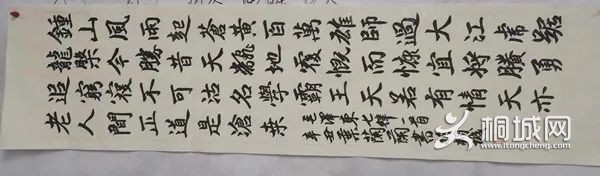 鍾山風雨起蒼黃百萬雄師過大江虎踞
龍槃今勝昔天翻地覆慨而慷宜將賸勇
追窮寇不可沽名學霸王天若有情天亦
老人間正道是滄桑
毛澤東七律一首
辛丑葉蘭蘭書
桐城网
www.itongcheng.com